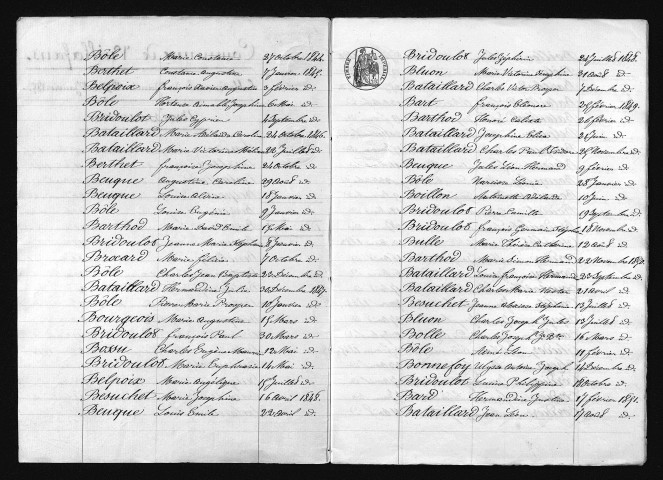 Bôle Marie Constance 27 octobre 1844.
Berthet Constance Augustine 7 Janvier 1845.
Belpoix françois Xavier Augustin 3 février id-
Bôle Hortense Aimable Josephine 6 Mai id-
Bridoulot Jules Cyprien 4 Septembre id-
Bataillard Marie Adelaïde Caroline 24 octobre 1846.
Bataillard Marie Victorine 22 Juillet id-
Berthet françoise Josephine 24 octobre id-
Beuque Augustine Caroline 29 août id-
Beuque Louise 18 Janvier id-
Bôle Louise Eugénie 9 Janvier id-
Barthod Marie David Emile 15 Mai id-
Bridoulot Jeanne Marie 8 Janvier id-
Brocard Marie 7 octobre id-
Bôle Charles Jean Baptiste 23 Décembre id-
Bataillard 30 Décembre 1847.
Bôle Pierre Marie Prosper 10 Janvier id-
Bourgeois Marie Augustine 15 Mars id-
Bridoulot françois Paul 30 Mars id-
Bossu Charles Eugène 12 Mai id-
Bridoulot Marie Euphrasie 14 Mai id-
Belpoix Marie Angélique 15 Juillet id-
Besuchet Marie Josephine 16 avril 1848.
Beuque Louis Emile 22 avril id-
TIMBRE IMPERIAL
Bridoulot Jules Zéphirin 24 Juillet 1848.
Bluon Marie Victorine 31 août id-
Bataillard Charles Victor 7 Décembre id-
Bart françois 25 février 1849.
Barthod Honoré Caliste 26 février id-
Bataillard Josephine 2 Juin id-
Bataillard Charles Paul 25 Novembre id-
Beuque Jules Léon 9 février id-
Bôle Narcisse 28 Janvier id-
Boillon Antoinette 10 Juin id-
Bridoulot Pierre Camille 19 Septembre id-
Bridoulot françois Germain 18 Novembre id-
Bulle Marie Thérèse Catherine 12 août id-
Barthod Marie Simon 22 Novembre 1850.
Bataillard Louise françoise 23 Septembre id-
Bataillard Charles Marie 21 avril id-
Besuchet Jeanne 13 Juillet id-
Bluon Charles Joseph Jules 13 Juillet id-
Bolle Charles Joseph 16 Mars id-
Bôle Aimé Léon 11 février id-
Bonnefoy Ulysse Antoine Joseph 14 Décembre id-
Bridoulot Louise Philippine 18 octobre id-
Bard 17 février 1851.
Bataillard Jean Léon 17 août id-